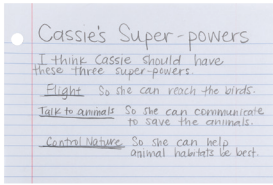 Cassie's Super-powers
I think Cassie should have
these three super-powers.
Flight So she can reach the birds.
Talk to animals So she can communicate
to save the animals.
Control Nature So she can help
animal habitats be best.